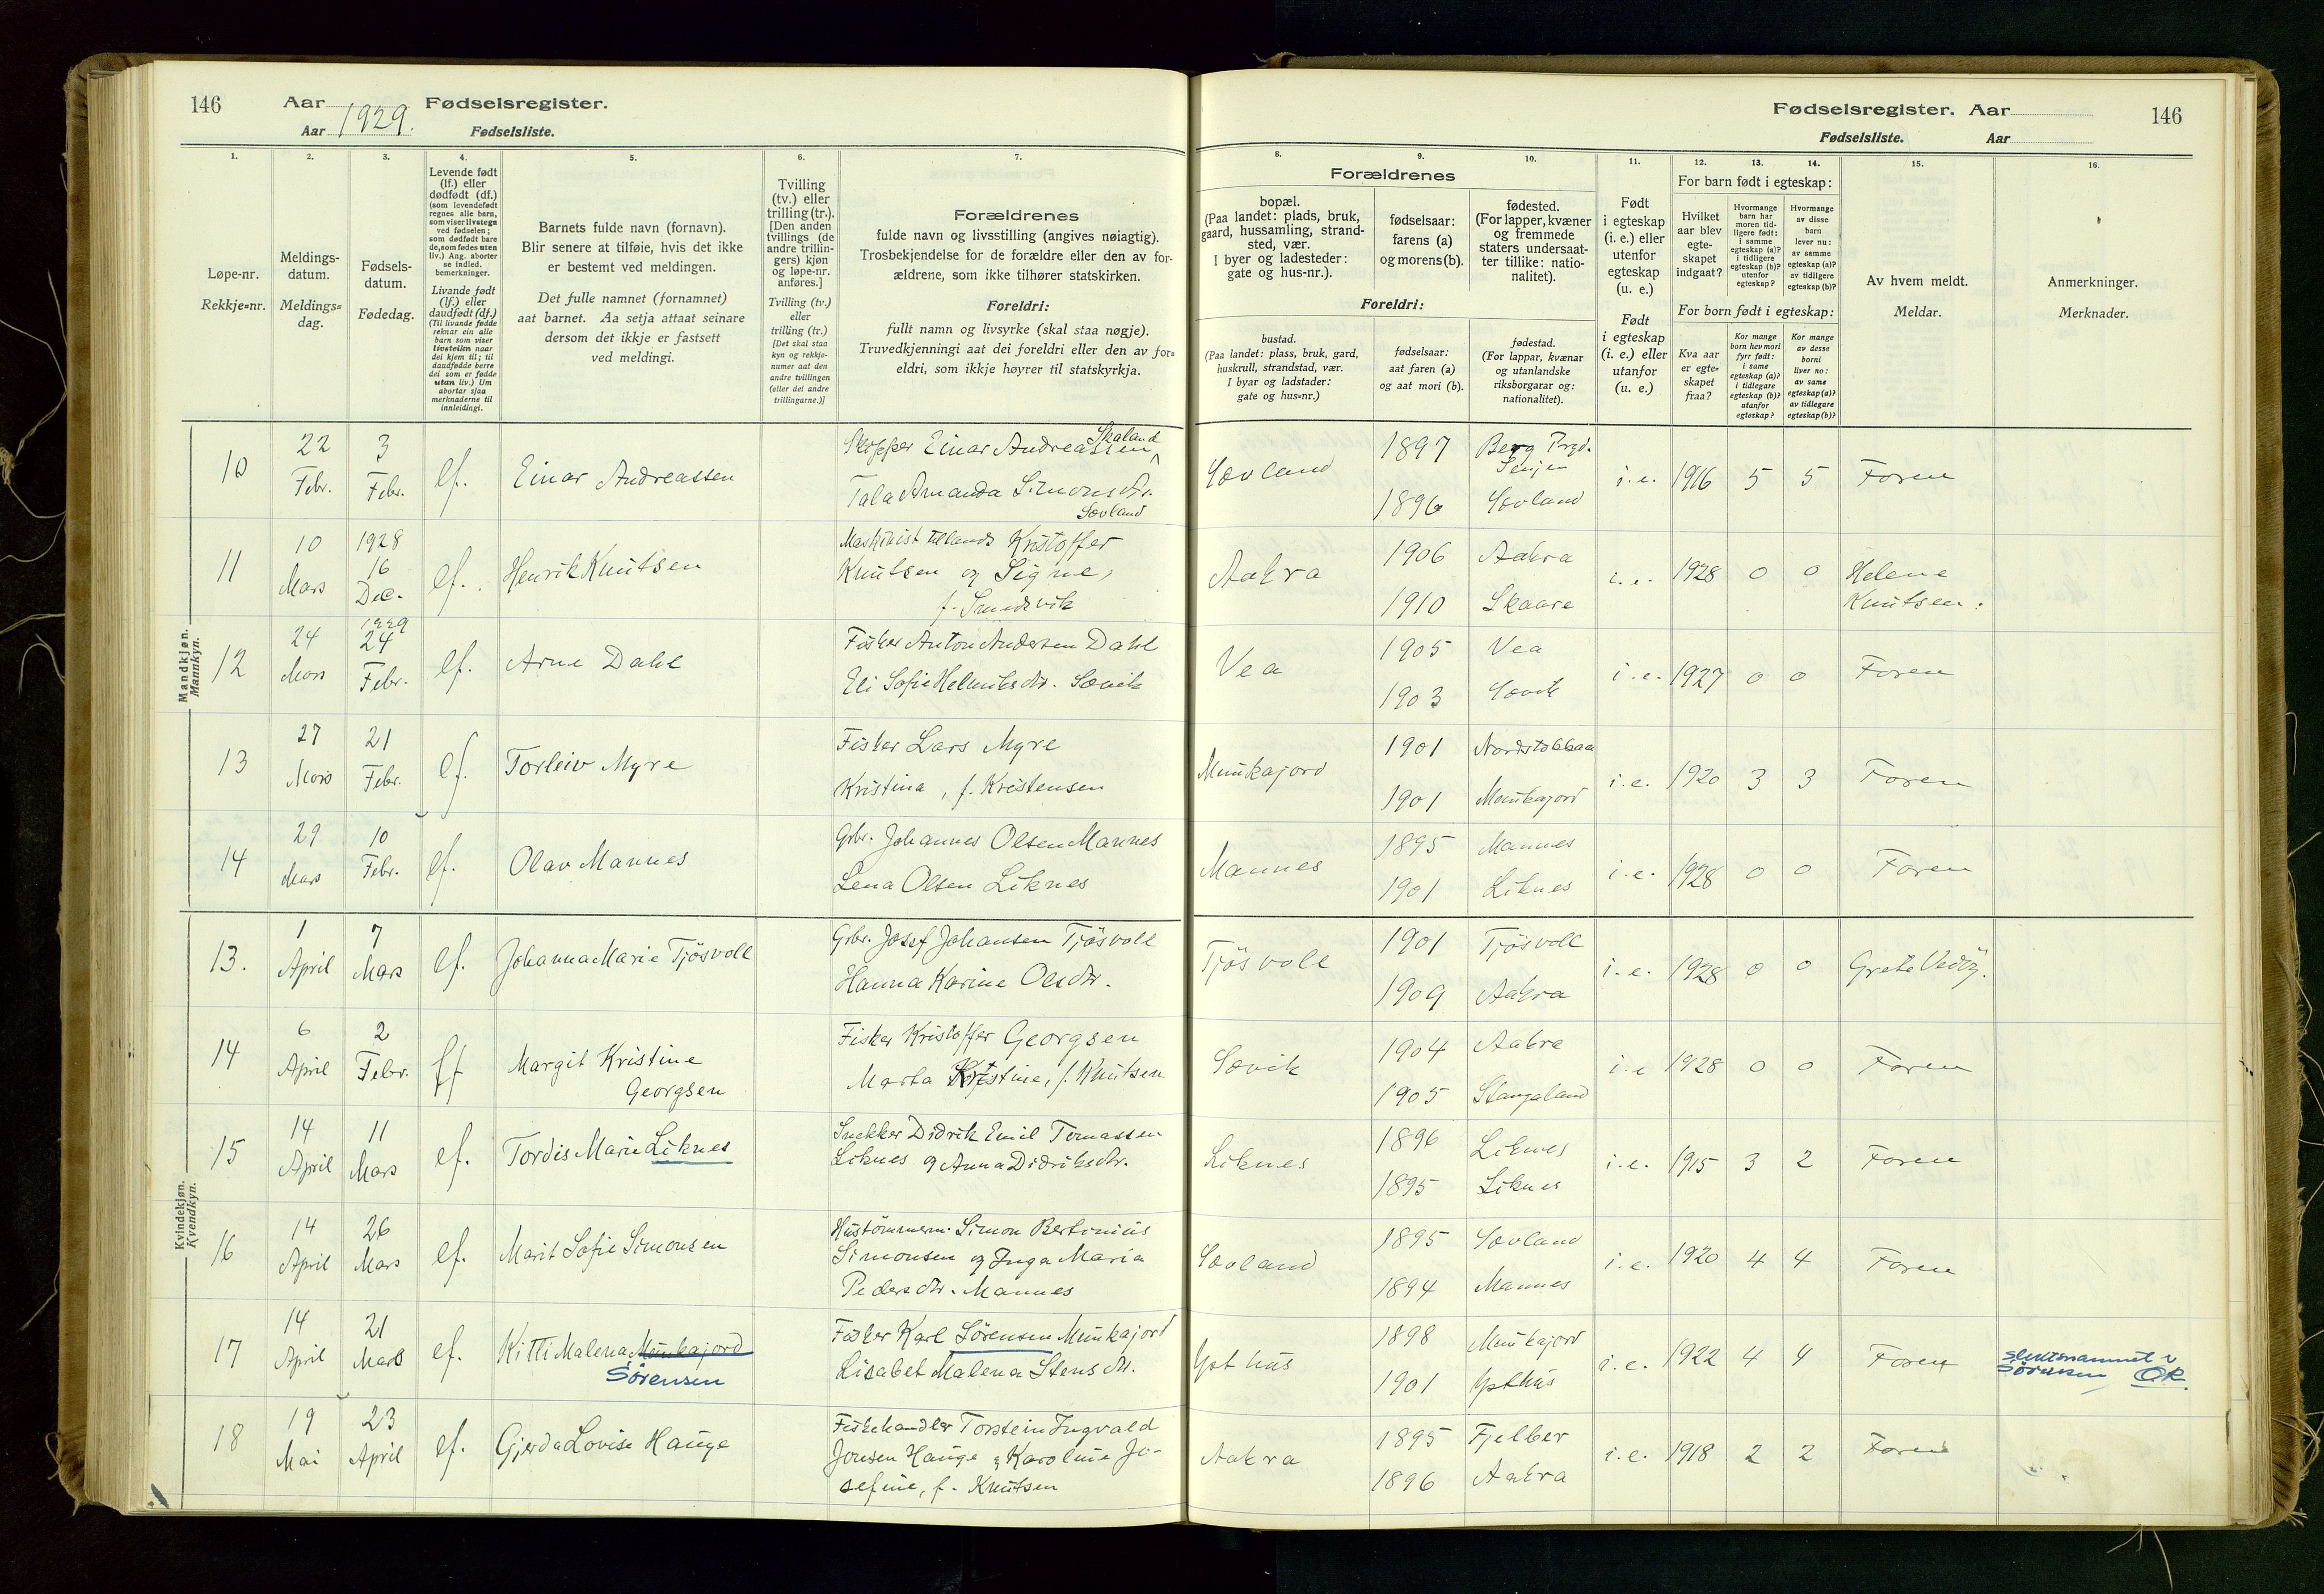 146 Aar 1929. Fødselsregister.
Aar Fødselsliste.
Fødselsregister. Aar 146
Fødselsliste. Aar
1. 2. 3. 4. 5. 6. 7. 8. 9. 10. 11. 12. 13. 14. 15. 16.
Løpe-nr.
Rekkje=nr.
Meldings-
datum.
Meldings=
dag.
Fødsels-
datum.
Fødedag.
Levende født
(lf.) eller
dødfødt (df.)
(som levendefødt
regnes alle barn,
som viser livstegn
ved fødselen;
som dødfødt bare
de, som fødes uten
liv.) Ang. aborter
se indled.
bemerkninger.
Livande født
(lf.) eller
daudfødt (df.)
(Til livande fødde
reknar ein alle
barn som viser
livsteikn naar
dei kjem til; til
daudfødde berre
dei som er fødde
utan liv.) Um
abortar sjaa
merknaderne til
innleidingi.
Barnets fulde navn (fornavn).
Blir senere at tilføie, hvis det ikke
er bestemt ved meldingen.
Det fulle namnet (fornamnet)
aat barnet. Aa setja attaat seinare
dersom det ikkje er fastsett
ved meldingi.
Tvilling
(tv.) eller
trilling (tr.).
[Den anden
tvillings (de
andre trillin-
gers) kjøn
og løpe-nr.
anføres.]
Tvilling (tv.)
eller
trilling (tr.)
[Det skal staa
kyn og rekkje-
numer aat den
andre tvillingen
(eller dei andre
trillingarne.)]
Forældrenes
fulde navn og livsstilling (angives nøiagtig).
Trosbekjendelse for de forældre eller den av for-
ældrene, som ikke tilhører statskirken.
Foreldri:
fullt namn og livsyrke (skal staa nøgje).
Truvedkjenningi aat dei foreldri eller den av for=
eldri, som ikkje høyrer til statskyrkja.
Forældrenes
bopæl.
(Paa landet: plads, bruk,
gaard, hussamling, strand-
sted, vær.
I byer og ladesteder:
gate og hus-nr.).
fødselsaar:
farens (a)
og morens (b).
fødested.
(For lapper, kvæner
og fremmede
staters undersaat-
ter tillike: natio-
nalitet).
Foreldri:
bustad.
(Paa landet: plass, bruk, gard,
huskrull, strandstad, vær.
I byar og ladstader:
gate og hus=nr.)
fødselsaar:
aat faren (a)
og aat mori (b).
fødestad.
(For lappar, kvænar
og utanlandske
riksborgarar og:
nationalitet).
Født
i egteskap
(i. e.) eller
utenfor
egteskap
(u. e.)
Født
i egteskap
(i. e.) eller
utanfor
(u. e.)
For barn født i egteskap:
Hvilket
aar blev
egte-
skapet
indgaat?
Hvormange
barn har
moren tid-
ligere født:
i samme
egteskap (a)?
i tidligere
egteskap (b)?
utenfor
egteskap?
Hvormange
av disse
barn
lever nu:
av samme
egteskap (a)?
av tidligere
egteskap (b)?
For born født i egteskap:
Kva aar
er egte=
skapet
fraa?
Kor mange
born hev mori
fyrr født:
i same
egteskap (a)?
i tidlegare
egteskap (b)?
utanfor
egteskap?
Kor mange
av desse
borni
liver no:
av same
egteskap (a)?
av tidlegare
egteskap (b)?
Av hvem meldt.
Meldar.
Anmerkninger.
Merknader.
Mandkjøn.
Mannkyn.
10 22 Febr. 3 Febr. lf. Einar Andreassen
Skipper Einar Andreassen Skaland
Tala Amanda Simonsdtr.
Sævland
Sævland 1897 Berg Prgd. Senjen
1896 Sævland
i. e. 1916 5 5 Faren
11 10 Mars 1928 16 Dec. lf. Henrik Knutsen
Maskinist tillands Kristoffer
Knutsen og Signe,
f. Smedsvik
Aakra 1906 Aakra
1910 Skaare
i. e. 1928 0 0 Helene
Knutsen.
12 24 Mars 1929 24 Febr. lf. Arne Dahl
Fisker Anton Andersen Dahl
Eli Sofie Helmiksdtr. Sævik
Vea 1905 Vea
1903 Sævik
i. e. 1927 0 0 Faren
13 27 Mars 21 Febr. lf. Torleiv Myre
Fisker Lars Myre
Kristina, f. Kristensen
Munkajord 1901 Nordstokkaa
1901 Munkajord
i. e. 1920 3 3 Faren
14 29 Mars 10 Febr. lf. Olav Mannes
Grbr. Johannes Olsen Mannes
Lena Olsen Liknes
Mannes 1895 Mannes
1901 Liknes
i. e. 1928 0 0 Faren
Kvindekjøn.
Kvendkyn.
13. 1 April 7 Mars lf. Johanna Marie Tjösvoll
Grbr. Josef Johansen Tjösvoll
Hanna Karine Olsdtr.
Tjösvoll 1901 Tjösvoll
1909 Aakra
i. e. 1928 0 0 Grete Vedöy.
14 6 April 2 Febr. lf Margit Kristine
Georgsen
Fisker Kristoffer Georgsen
Marta Kristine, f. Knutsen
Sævik 1904 Aakra
1905 Stangaland
i. e 1928 0 0 Faren
15 14 April 11 Mars lf. Tordis Marie Liknes
Snekker Didrik Emil Tomassen
Liknes og Anna Didriksdtr.
Liknes 1896 Liknes
1895 Liknes
i. e. 1915 3 2 Faren
16 14 April 26 Mars lf. Marit Sofie Simonsen
Hustömmerm. Simon Bertinius
Simonsen og Inga Maria
Pedersdtr. Mannes
Sævland 1895 Sævland
1894 Mannes
i. e. 1920 4 4 Faren
17 14 April 21 Mars lf. Kitti Malena Munkajord
Sörensen
Fisker Karl Sörensen Munkajord
Lisabet Malena Stensdtr.
Ypthus 1898 Munkajord
1901 Ypthus
i. e. 1922 4 4 Faren
slektsnamnet er
Sörensen OR.
18 19 Mai 23 April lf. Gjerda Lovise Hauge
Fiskehandler Torstein Ingvald
Jonsen Hauge og Karoline Jo-
sefine, f. Knutsen
Aakra 1895 Fjelber
1896 Aakra
i. e. 1918 2 2 Faren